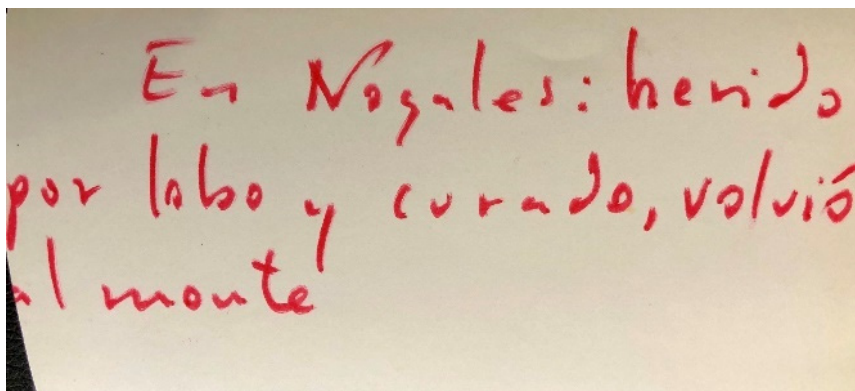 En Nogales: herido
por lobo y curado, volvió
al monte